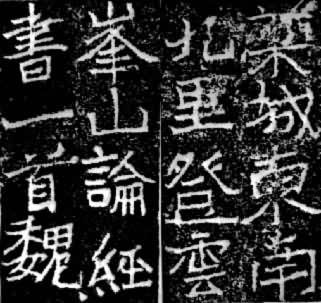 萊城東南
九里登雲
峯山論經
書一首魏